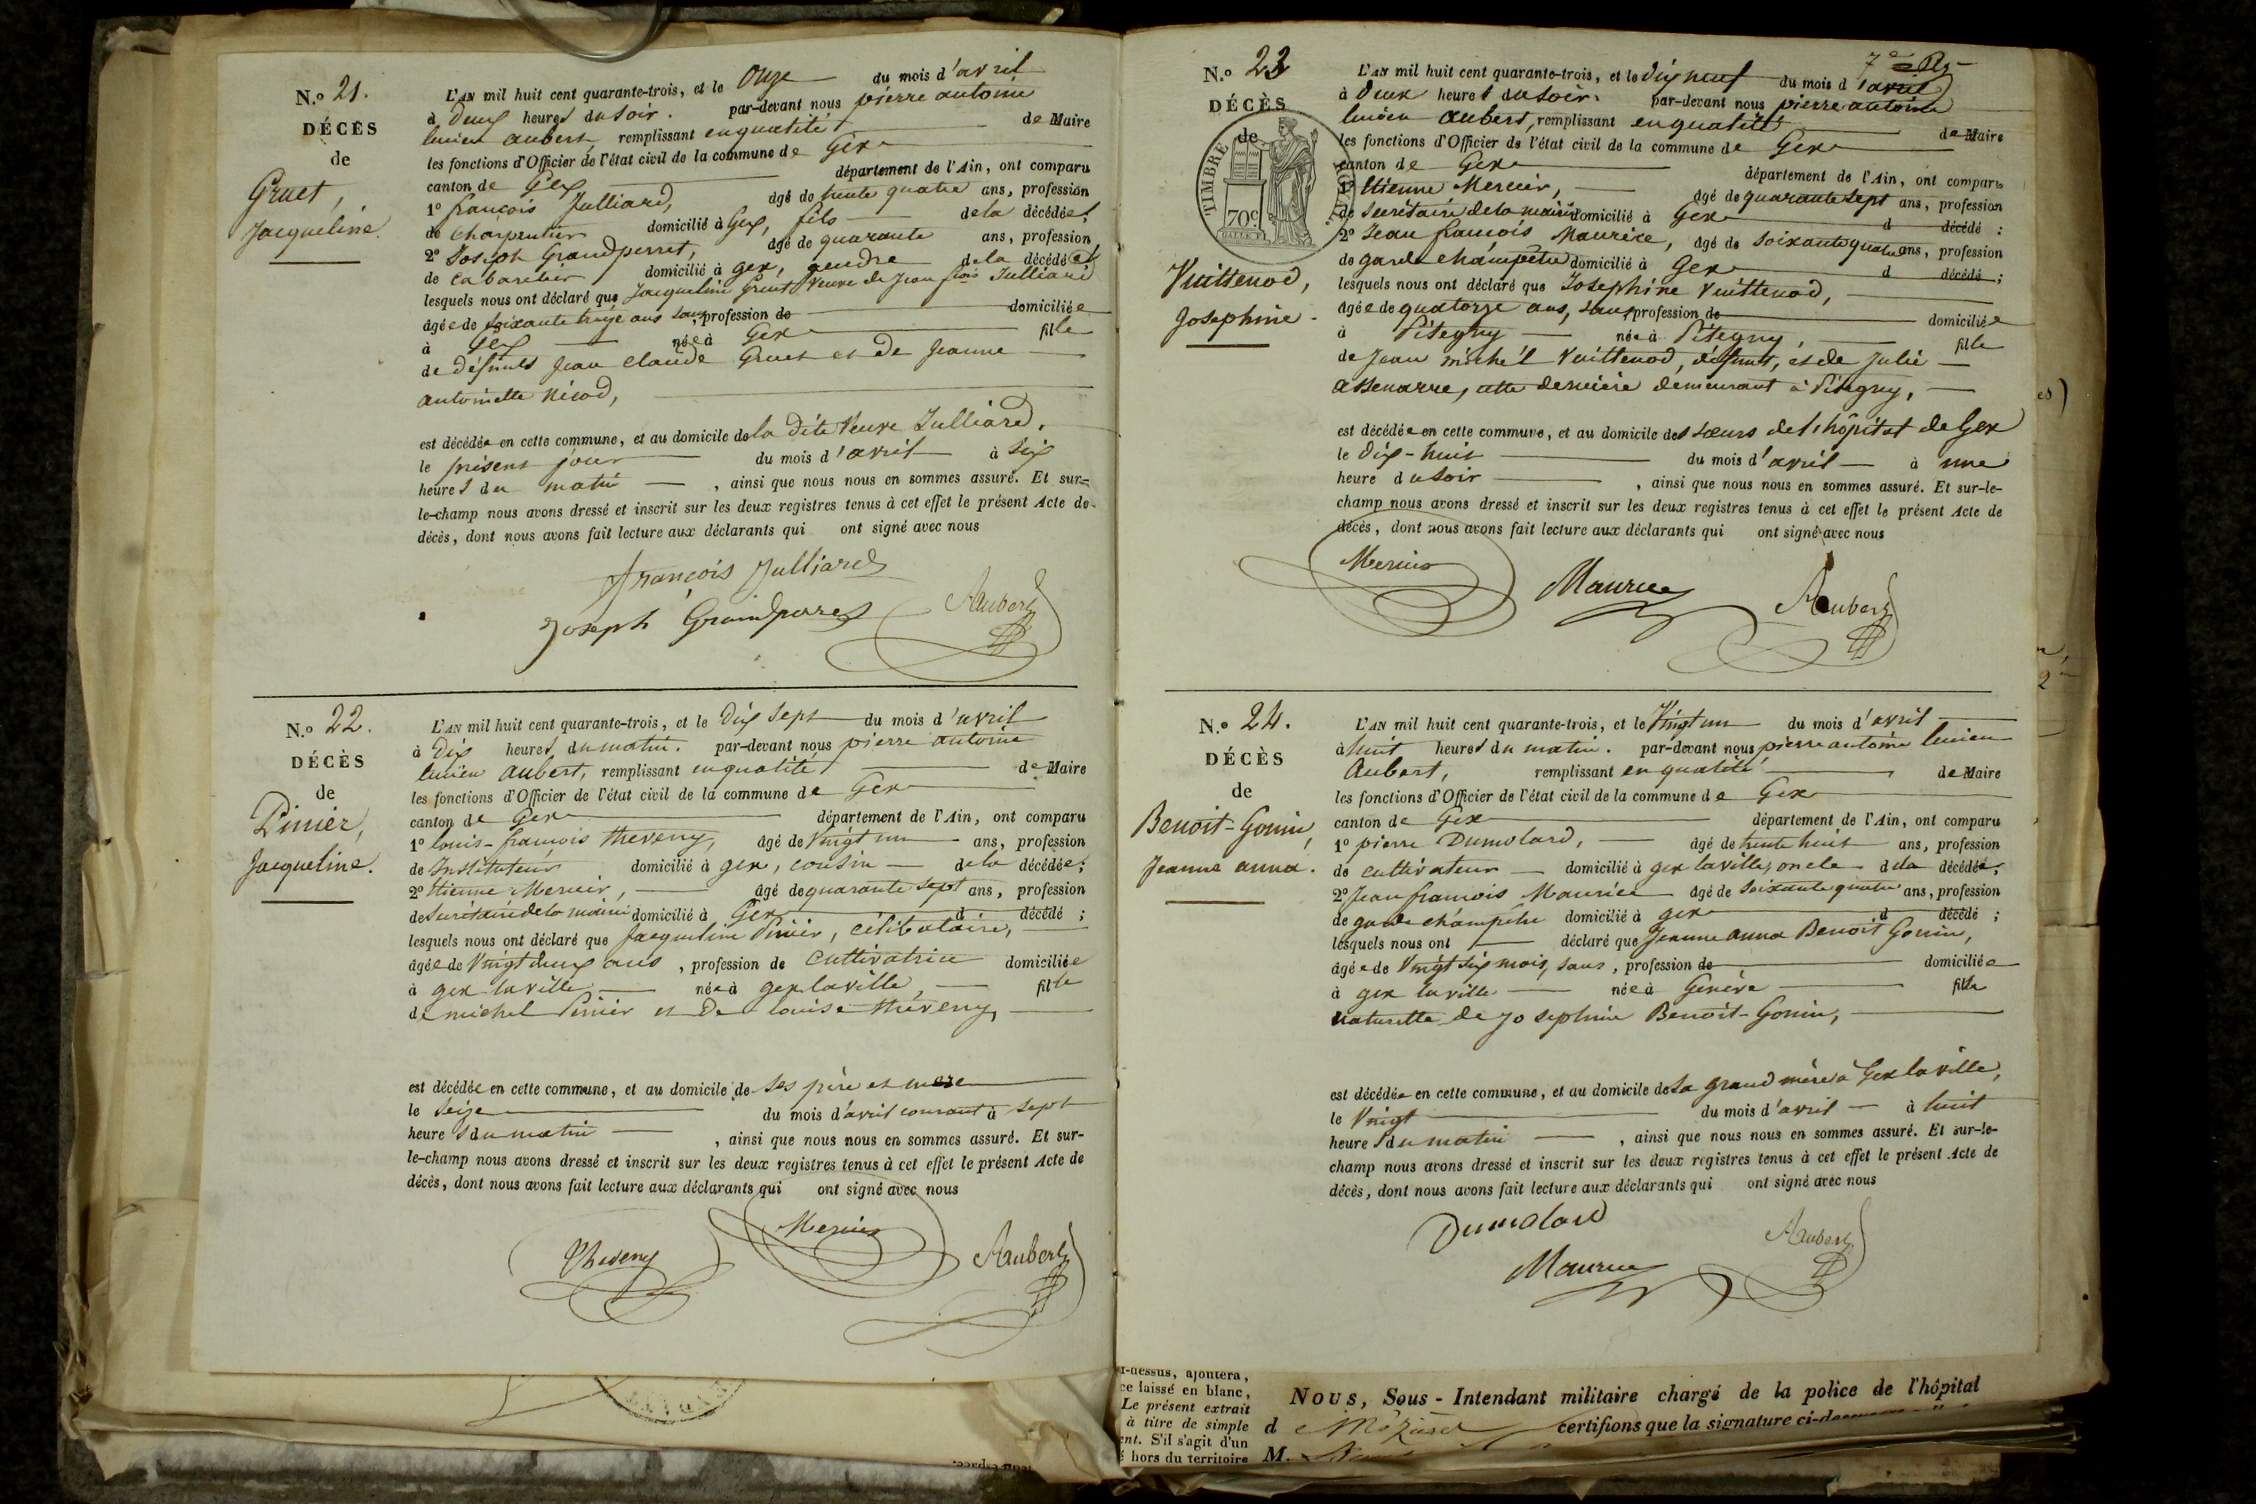 N.º 21.
DÉCÈS
de
Gruet,
Jacqueline.
L'AN mil huit cent quarante-trois, et le onze du mois d'avril
à deux heures du soir. par-devant nous pierre antoine
lucien aubert, remplissant en qualité de Maire
les fonctions d'Officier de l'état civil de la commune de Gex
canton de Gex département de l'Ain, ont comparu
1º françois Julliard, âgé de trente quatre ans, profession
de charpentier domicilié à Gex, fils de la décédée;
2º Joseph Grandperret, âgé de quarante ans, profession
de cabaretier domicilié à gex, gendre de la décédée;
lesquels nous ont déclaré que Jacqueline Gruet Veuve de Jean fçois Julliard
âgée de soixante treize ans sans, profession de domiciliée
à Gex née à Gex fille
de défunts Jean Claude Gruet et de Jeanne
antoinette Nicod,
est décédée en cette commune, et au domicile de la dite Veuve Julliard.
le présent jour du mois d'avril à six
heures du matin, ainsi que nous nous en sommes assuré. Et sur-
le-champ nous avons dressé et inscrit sur les deux registres tenus à cet effet le présent Acte de
décès, dont nous avons fait lecture aux déclarants qui ont signé avec nous
françois Julliard
Joseph Grandperret
Aubert
N.º 22.
DÉCÈS
de
Pinier,
Jacqueline.
L'AN mil huit cent quarante-trois, et le dix sept du mois d'avril
à dix heures du matin. par-devant nous pierre antoine
lucien aubert, remplissant en qualité de Maire
les fonctions d'Officier de l'état civil de la commune de Gex
canton de Gex département de l'Ain, ont comparu
1º louis-françois theveny, âgé de Vingt un ans, profession
de Instituteur domicilié à gex, cousin de la décédée;
2º Etienne Mercier, âgé de quarante sept ans, profession
de Secrétaire de la mairie domicilié à Gex d décédé;
lesquels nous ont déclaré que Jacqueline Pinier, célibataire,
âgée de Vingt deux ans, profession de Cultivatrice domiciliée
à gex la ville, née à gex la ville, fille
de michel Pinier et De louise theveny,
est décédée en cette commune, et au domicile de ses père et mere
le seize du mois d'avril courant à sept
heures du matin, ainsi que nous nous en sommes assuré. Et sur-
le-champ nous avons dressé et inscrit sur les deux registres tenus à cet effet le présent Acte de
décès, dont nous avons fait lecture aux déclarants qui ont signé avec nous
Theveny
Mercier
Aubert
7e
N.º 23
DÉCÈS
de
TIMBRE ROYAL
70c
Vuittenod,
Josephine.
L'AN mil huit cent quarante-trois, et le dix neuf du mois d'avril
à deux heures du soir. par-devant nous pierre antoine
lucien aubert, remplissant en qualité de Maire
les fonctions d'Officier de l'état civil de la commune de Gex
canton de Gex département de l'Ain, ont comparu
1º Etienne Mercier, âgé de quarante sept ans, profession
de secrétaire de la mairie domicilié à Gex d décédé;
2º Jean françois Maurice, âgé de soixante quatre ans, profession
de garde champêtre domicilié à Gex d décédé;
lesquels nous ont déclaré que Josephine Vuittenod,
âgée de quatorze ans, sans profession de domiciliée
à Pitegny née à Pitegny, fille
de Jean miche'l Vuittenod, défunt, et de Julie
assenarre, cette dernière demeurant à Pitegny,
est décédée en cette commune, et au domicile des sœurs de l'hôpital de Gex
le dix-huit du mois d'avril à une
heure du soir, ainsi que nous nous en sommes assuré. Et sur-le-
champ nous avons dressé et inscrit sur les deux registres tenus à cet effet le présent Acte de
décès, dont nous avons fait lecture aux déclarants qui ont signé avec nous
Mercier
Maurice
Aubert
N.º 24.
DÉCÈS
de
Benoit-Gonin,
Jeanne anna.
L'AN mil huit cent quarante-trois, et le Vingt un du mois d'avril
à huit heures du matin. par-devant nous pierre antoine lucien
Aubert, remplissant en qualité de Maire
les fonctions d'Officier de l'état civil de la commune de Gex
canton de Gex département de l'Ain, ont comparu
1º pierre Dumolard, âgé de trente huit ans, profession
de cultivateur domicilié à gex la ville, oncle de la décédée;
2º Jean françois Maurice âgé de soixante quatre ans, profession
de garde champêtre domicilié à gex d décédé;
lesquels nous ont déclaré que Jeanne anna Benoit Gonin,
âgée de Vingt six mois, sans, profession de domiciliée
à gex la ville née à Genève fille
naturelle de Josephine Benoit-Gonin,
est décédée en cette commune, et au domicile de sa grand mère à Gex la ville,
le Vingt du mois d'avril à huit
heures du matin, ainsi que nous nous en sommes assuré. Et sur-le-
champ nous avons dressé et inscrit sur les deux registres tenus à cet effet le présent Acte de
décès, dont nous avons fait lecture aux déclarants qui ont signé avec nous
Dumolard
Maurice
Aubert
-dessus, ajoutera,
ce laissé en blanc,
Le présent extrait
à titre de simple
ent. S'il s'agit d'un
é hors du territoire
NOUS, Sous-Intendant militaire chargé de la police de l'hôpital
d certifions que la signature
M.